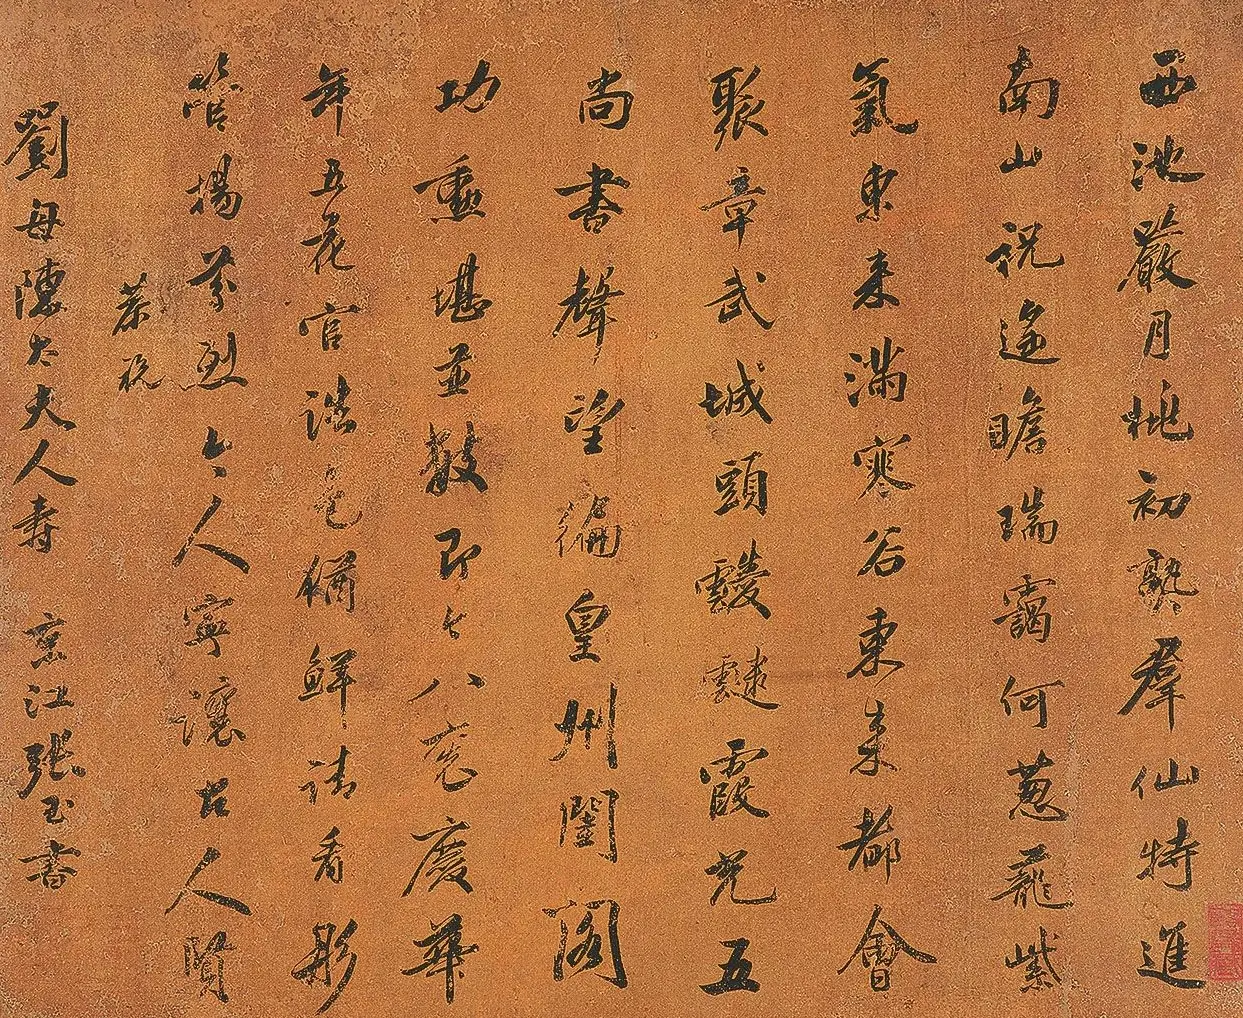 西池嚴月桃初熟羣仙特進
南山祝遙瞻瑞靄何蔥蘢紫
氣東來滿寒谷東來都會
聚章武城頭靉靆霞光五
尚書聲望徧皇州閨閣
功勳堪並數即今八袠慶華
年五花官誥色猶鮮請看彤
管揚芬烈今人寧讓古人賢
恭祝
劉母陳太夫人壽 京江張玉書